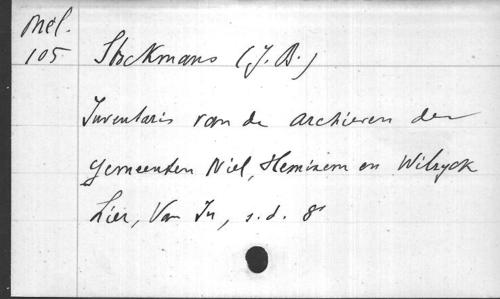 Mel.
105
Stockmans (J. B.)
Inventaris van de archieven der
gemeenten Niel, Hemixem en Wilryck
Lier, Van In, s.d. 8°